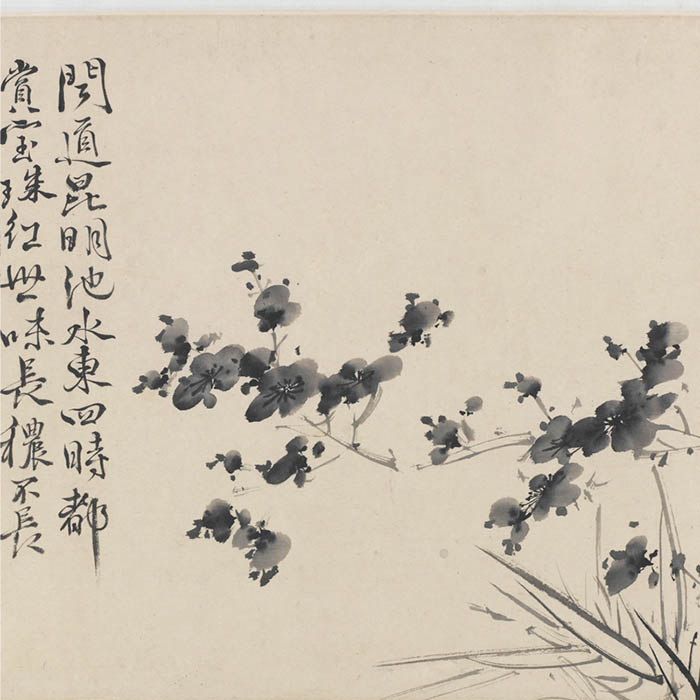 聞道昆明池水東四時都
賞宝珠紅世味長穠不長